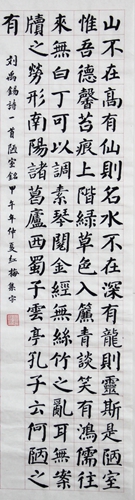 山不在高有仙則名水不在深有龍則靈斯是陋室
惟吾德馨苔痕上階綠草色入簾青談笑有鴻儒往
來無白丁可以調素琴閱金經無絲竹之亂耳無案
牘之勞形南陽諸葛廬西蜀子雲亭孔子云何陋之
有
刘禹錫詩一首陋室銘甲午年仲夏红梅集字